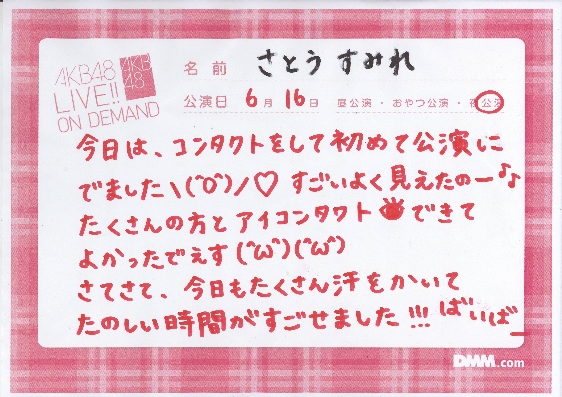 AKB48
LIVE!!
ON DEMAND
AKB
48
名前 さとうすみれ
公演日 6月16日 昼公演・おやつ公演・夜公演
今日は、コンタクトをして初めて公演に
でました\(^O^)/♡ すごいよく見えたのー♪♪
たくさんの方とアイコンタクトできて
よかったでぇす(^ω^)(^ω^)
さてさて、今日もたくさん汗をかいて
たのしい時間がすごせました!!! ばいばー
DMM.com